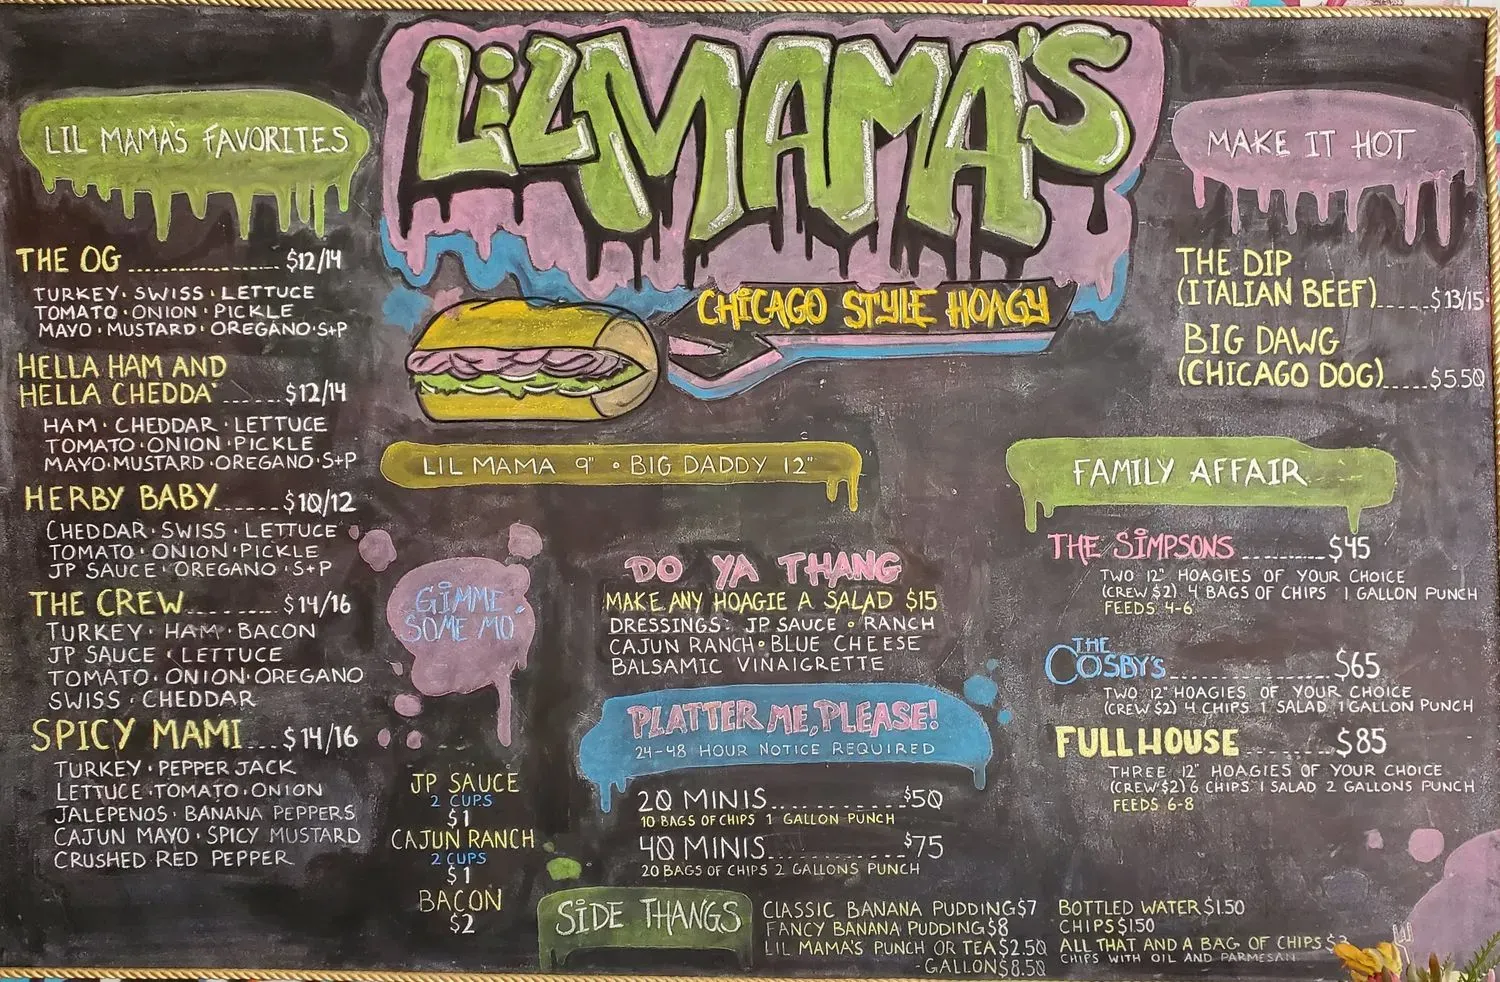 LIL MAMA'S
CHICAGO STYLE HOAGY
LIL MAMA'S FAVORITES
THE OG ........................ $12/14
TURKEY · SWISS · LETTUCE
TOMATO · ONION · PICKLE
MAYO · MUSTARD · OREGANO · S+P
HELLA HAM AND
HELLA CHEDDA' ...... $12/14
HAM · CHEDDAR · LETTUCE
TOMATO · ONION · PICKLE
MAYO · MUSTARD · OREGANO · S+P
HERBY BABY ...... $10/12
CHEDDAR · SWISS · LETTUCE
TOMATO · ONION · PICKLE
JP SAUCE · OREGANO · S+P
THE CREW ......... $14/16
TURKEY · HAM · BACON
JP SAUCE · LETTUCE
TOMATO · ONION · OREGANO
SWISS · CHEDDAR
SPICY MAMI ... $14/16
TURKEY · PEPPER JACK
LETTUCE · TOMATO · ONION
JALEPENOS · BANANA PEPPERS
CAJUN MAYO · SPICY MUSTARD
CRUSHED RED PEPPER
LIL MAMA 9" · BIG DADDY 12"
GIMME
SOME MO
JP SAUCE
2 CUPS
$1
CAJUN RANCH
2 CUPS
$1
BACON
$2
DO YA THANG
MAKE ANY HOAGIE A SALAD $15
DRESSINGS: JP SAUCE · RANCH
CAJUN RANCH · BLUE CHEESE
BALSAMIC VINAIGRETTE
PLATTER ME, PLEASE!
24-48 HOUR NOTICE REQUIRED
20 MINIS ............... $50
10 BAGS OF CHIPS 1 GALLON PUNCH
40 MINIS ............... $75
20 BAGS OF CHIPS 2 GALLONS PUNCH
MAKE IT HOT
THE DIP
(ITALIAN BEEF) ...... $13/15
BIG DAWG
(CHICAGO DOG) ..... $5.50
FAMILY AFFAIR
THE SIMPSONS .......... $45
TWO 12" HOAGIES OF YOUR CHOICE
(CREW $2) 4 BAGS OF CHIPS 1 GALLON PUNCH
FEEDS 4-6
THE
COSBY'S .................. $65
TWO 12" HOAGIES OF YOUR CHOICE
(CREW $2) 4 CHIPS 1 SALAD 1 GALLON PUNCH
FULL HOUSE .......... $85
THREE 12" HOAGIES OF YOUR CHOICE
(CREW $2) 6 CHIPS 1 SALAD 2 GALLONS PUNCH
FEEDS 6-8
SIDE THANGS
CLASSIC BANANA PUDDING $7
FANCY BANANA PUDDING $8
LIL MAMA'S PUNCH OR TEA $2.50
- GALLON $8.50
BOTTLED WATER $1.50
CHIPS $1.50
ALL THAT AND A BAG OF CHIPS
CHIPS WITH OIL AND PARMESAN